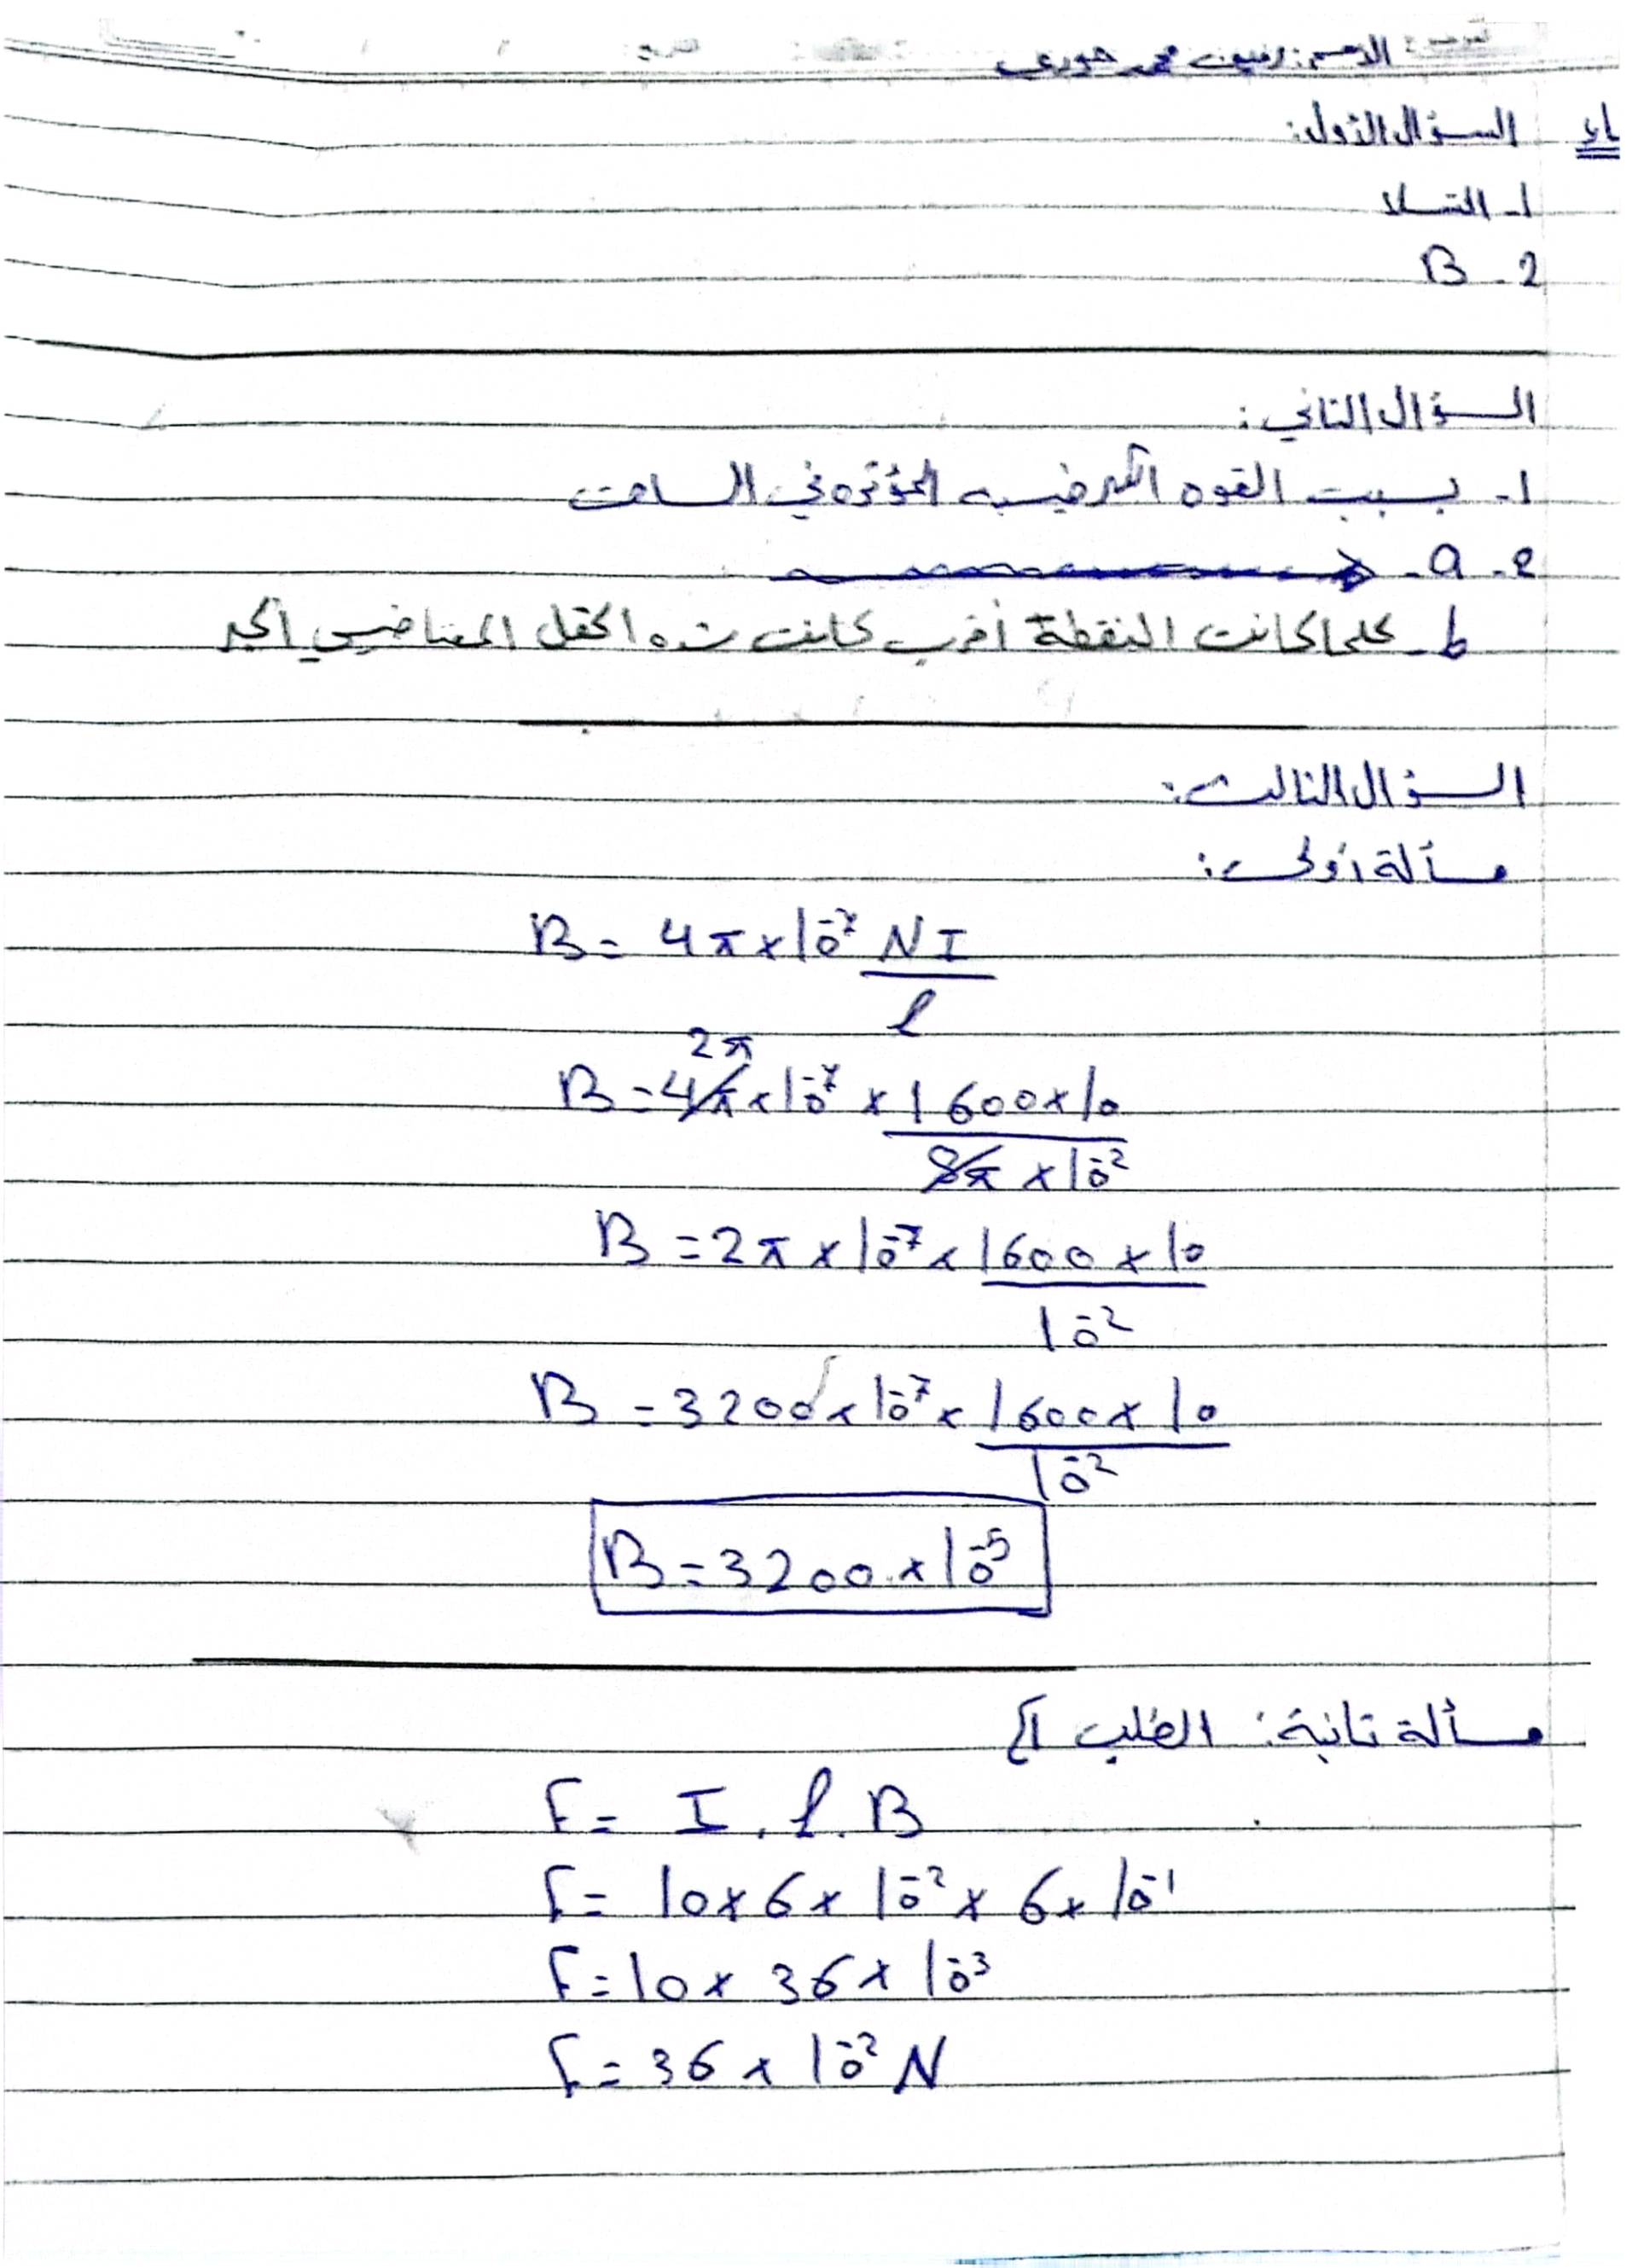 الاسم: محمد حوري
السؤال الأول:
1- التسلا
2 - B
السؤال الثاني:
1- بسبب القوه الكهرطيسيه المؤثره في الساعت
2 - a -
b - كلما كانت النقطة أقرب كانت شده الحقل المغناطيسي أكبر
السؤال الثالث:
مسألة أولى:
B = 4π × 10⁻⁷ NI / l
B = 4π × 10⁻⁷ × 1600 × 10 / 8π × 10⁻² 2π
B = 2π × 10⁻⁷ × 1600 × 10 / 10⁻²
B = 3200 × 10⁻⁷ × 1600 × 10 / 10⁻²
B = 3200 × 10⁻⁵
مسألة ثانية: الطلب 1]
F = I . l . B
F = 10 × 6 × 10⁻² × 6 × 10⁻¹
F = 10 × 36 × 10⁻³
F = 36 × 10⁻² N